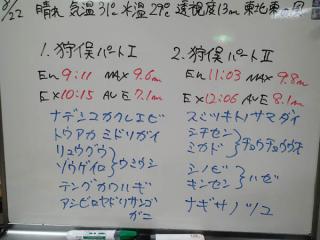 8/22 晴れ 気温31℃ 水温29℃ 透視度13m 東北東の風
1. 狩俣パートⅠ
En 9:11 MAX 9.6m
Ex 10:15 AVE 7.1m
ナデシコカクレエビ
トウアカ ミドリガイ
リュウグウ
ゾウゲイロ
ウミウシ
テングカワハギ
アシビロサンゴヤドリガニ
2. 狩俣パートⅡ
En 11:03 MAX 9.8m
Ex 12:06 AVE 8.1m
スミツキトノサマダイ
シチセン
ミカド
チョウチョウウオ
シノビ
キンセン
ハゼ
ナギサノツユ